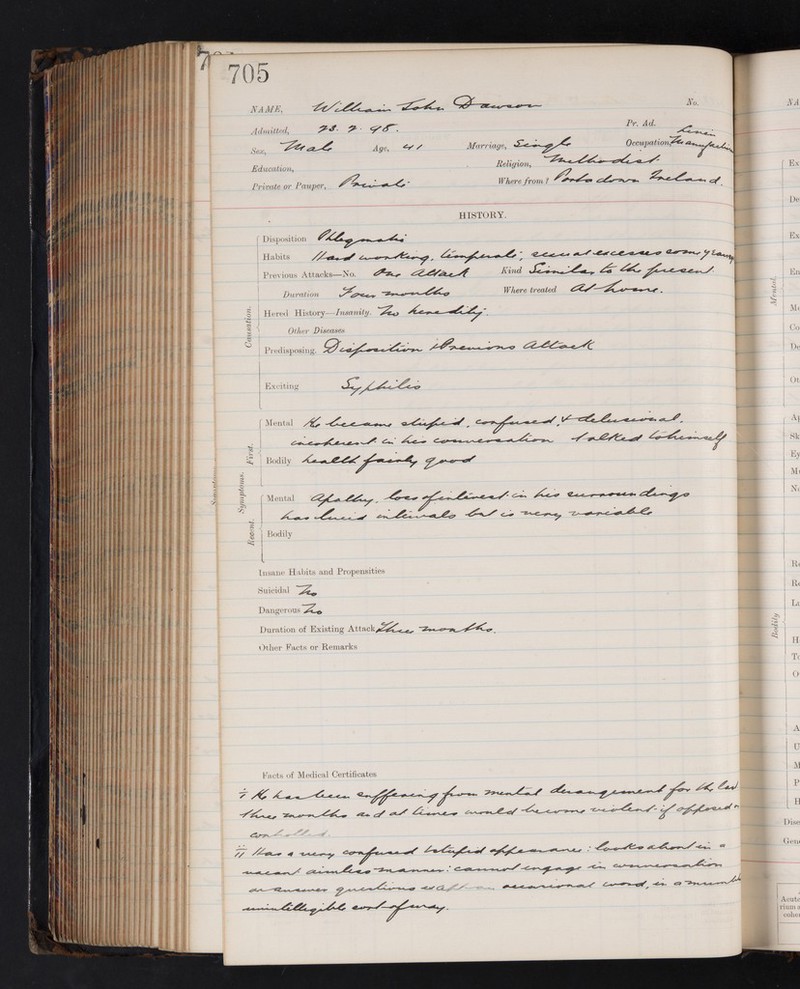 705
NAME, William John Dawson No.
Admitted, 23. 9. 98. Pr. Ad.
Sex, Male Age, 41 Marriage, Single Occupation, Linen Manufacturer
Education, Religion, Methodist
Private or Pauper, Private Where from? Portadown Ireland.
HISTORY.
Disposition Phlegmatic
Habits Hard working, temperate, sexual excesses some years
Previous Attacks—No. One Attack Kind Similar to the present
Duration Four months Where treated At home.
Causation.
Hered History—Insanity. No heredity.
Other Diseases
Predisposing. Disposition & Previous Attack
Exciting Syphilis
Symptoms.
First.
Mental He became stupid, confused & delusional.
incoherent in his conversation talked to himself
Bodily health fairly good
Recent.
Mental Apathy, loss of interest in his surroundings
has lucid intervals but is very variable
Bodily
Insane Habits and Propensities
Suicidal No
Dangerous No
Duration of Existing Attack Three months.
Other Facts or Remarks
Facts of Medical Certificates
He has been suffering from mental derangement for the last
three months and at times would become violent if opposed or
controlled.
Has a very confused & stupid appearance: looks about in a
vacant aimless manner: cannot engage in conversation
or answer questions occasional word, in a
unintelligible sort of way.
NA
Ex
De
Ex
En
Mental.
Me
Co
De
Ot
Ap
Sk
Ey
Mu
Ne
Re
Re
Lu
Bodily
H
To
O
A
U
M
P
H
Dise
Gene
Acute
rium a
cohe